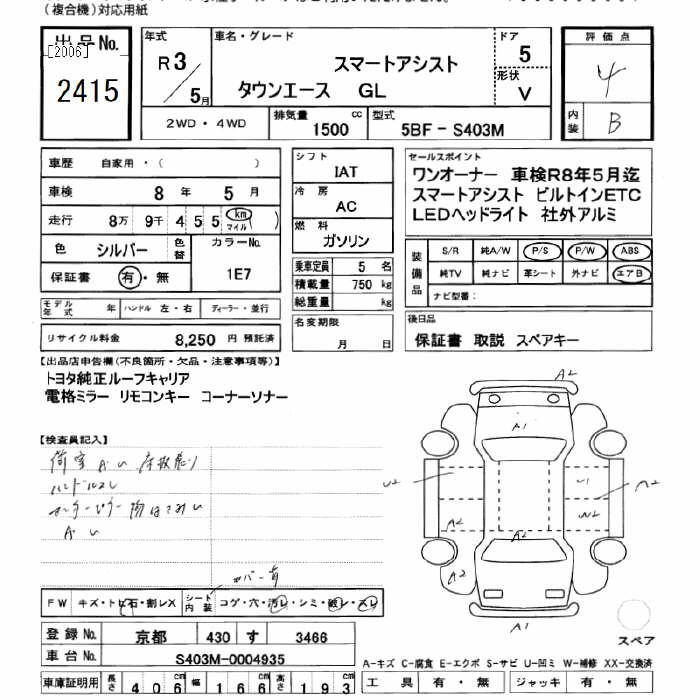 (複合機)対応用紙
出品No.
[2006]
2415
年式
R3/5月
車名・グレード
スマートアシスト
タウンエース GL
ドア 5
形状 V
評価点
4
内装 B
2WD・4WD
排気量 1500 cc
型式 5BF-S403M
車歴 自家用・( )
車検 8年 5月
走行 8万 9千 4 5 5 (km マイル)
色 シルバー 色替 カラーNo. 1E7
保証書 有・無
モデル年式 年 ハンドル 左・右 ディーラー・並行
リサイクル料金 8,250 円 預託済
シフト
IAT
冷房
AC
燃料
ガソリン
乗車定員 5 名
積載量 750 kg
総重量 kg
名変期限
月 日
セールスポイント
ワンオーナー 車検R8年5月迄
スマートアシスト ビルトインETC
LEDヘッドライト 社外アルミ
装備品
S/R 純A/W P/S P/W ABS
純TV 純ナビ 革シート 外ナビ エアB
ナビ型番:
後日品
保証書 取説 スペアキー
【出品店申告欄(不良箇所・欠品・注意事項等)】
トヨタ純正ルーフキャリア
電格ミラー リモコンキー コーナーソナー
【検査員記入】
荷室
ハンドルスレ
カバー有
FW キズ・トビ石・割レX
シート内装 コゲ・穴・汚レ・シミ・破レ・スレ
登録No. 京都 430 す 3466
車台No. S403M-0004935
車庫証明用 長さ 406cm 幅 166cm 高さ 193cm
A2
A1
U2
U1
A2
W2
A2
A2
A2
A1
スペア
A-キズ C-腐食 E-エクボ S-サビ U-凹ミ W-補修 XX-交換済
工具 有・無 ジャッキ 有・無